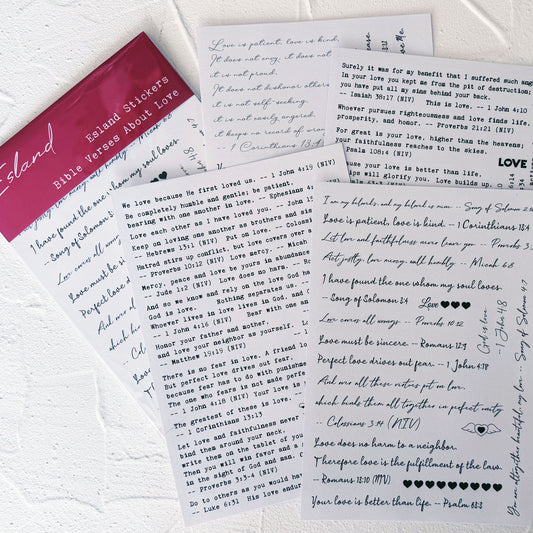 Esland
Esland Stickers
Bible Verses About Love
I have found the one whom my soul loves.
-- Song of Solomon
Love covers all
Love must be
Perfect love drives
And over all
which binds
Love is patient, love is kind.
It does not envy, it does not
it is not proud.
It does not dishonor others
it is not self-seeking,
it is not easily angered,
it keeps no record of
-- 1 Corinthians 13:4
Surely it was for my benefit that I suffered such
In your love you kept me from the pit of destruction;
you have put all my sins behind your back.
-- Isaiah 38:17 (NIV) This is love. -- 1 John 4:10
Whoever pursues righteousness and love finds life,
prosperity, and honor. -- Proverbs 21:21 (NIV)
For great is your love, higher than the heavens;
your faithfulness reaches to the skies.
Psalm 108:4 (NIV)
LOVE
your love is better than life,
lips will glorify you. Love builds up.
We love because He first loved us. -- 1 John 4:19 (NIV)
Be completely humble and gentle; be patient,
bearing with one another in love. -- Ephesians
Love each other as I have loved you. -- John
Keep on loving one another as brothers and
-- Hebrews 13:1 (NIV) Put on love. -- Coloss
Hatred stirs up conflict, but love covers over
-- Proverbs 10:12 (NIV) Love mercy. -- Micah
Mercy, peace and love be yours in abundance
-- Jude 1:2 (NIV) Love does no harm. -- Romans
And so we know and rely on the love God has
God is love. Nothing separates us.
Whoever lives in love lives in God, and
-- 1 John 4:16 (NIV) Bear with one
Honor your father and mother,
and love your neighbor as yourself.
-- Matthew 19:19 (NIV)
There is no fear in love. A friend
But perfect love drives out fear,
because fear has to do with punishment
The one who fears is not made perfect
-- 1 John 4:18 (NIV) Your love is
The greatest of these is love.
-- 1 Corinthians 13:13
Let love and faithfulness never
bind them around your neck,
write them on the tablet of your
Then you will win favor and a
in the sight of God and man.
-- Proverbs 3:3-4 (NIV)
Do to others as you would have
-- Luke 6:31 His love endures
I am my beloved's, and my beloved is mine. -- Song of Solomon
Love is patient, love is kind -- 1 Corinthians 13:4
Let love and faithfulness never leave you -- Proverbs
Act justly, love mercy, walk humbly -- Micah 6:8
I have found the one whom my soul loves.
-- Song of Solomon 3:4 Love
Love covers all wrongs -- Proverbs 10:12
Love must be sincere. -- Romans 12:9
Perfect love drives out fear. -- 1 John 4:18
And over all these virtues put on love,
which binds them all together in perfect unity
-- Colossians 3:14 (NIV)
Love does no harm to a neighbor.
Therefore love is the fulfillment of the law.
-- Romans 13:10 (NIV)
Your love is better than life. -- Psalm 63:3
God is love
-- 1 John 4:8
You are altogether beautiful, my love -- Song of Solomon 4:7